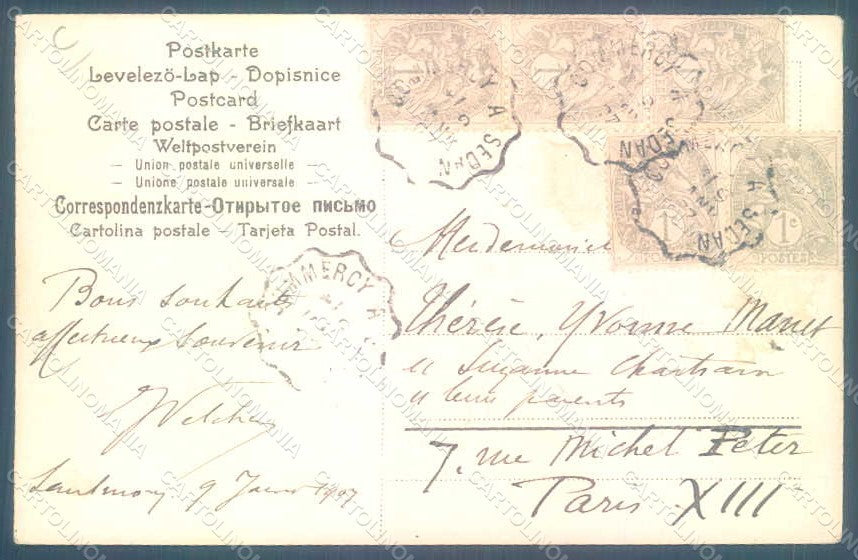 Postkarte
Levelező-Lap - Dopisnice
Postcard
Carte postale - Briefkaart
Weltpostverein
— Union postale universelle —
— Unione postale universale —
Correspondenzkarte-Открытое письмо
Cartolina postale - Tarjeta Postal.
COMMERCY A SEDAN
COMMERCY A SEDAN
COMMERCY A SEDAN
COMMERCY A
1c 1c 1c
1c 1c
POSTES
Bons souhaits
affectueux souvenir
9 1907
Thérèse, Yvonne Manet
Suzanne
leurs parents
7, rue Michel Peter
Paris XIII
CARTOLINOMANIA